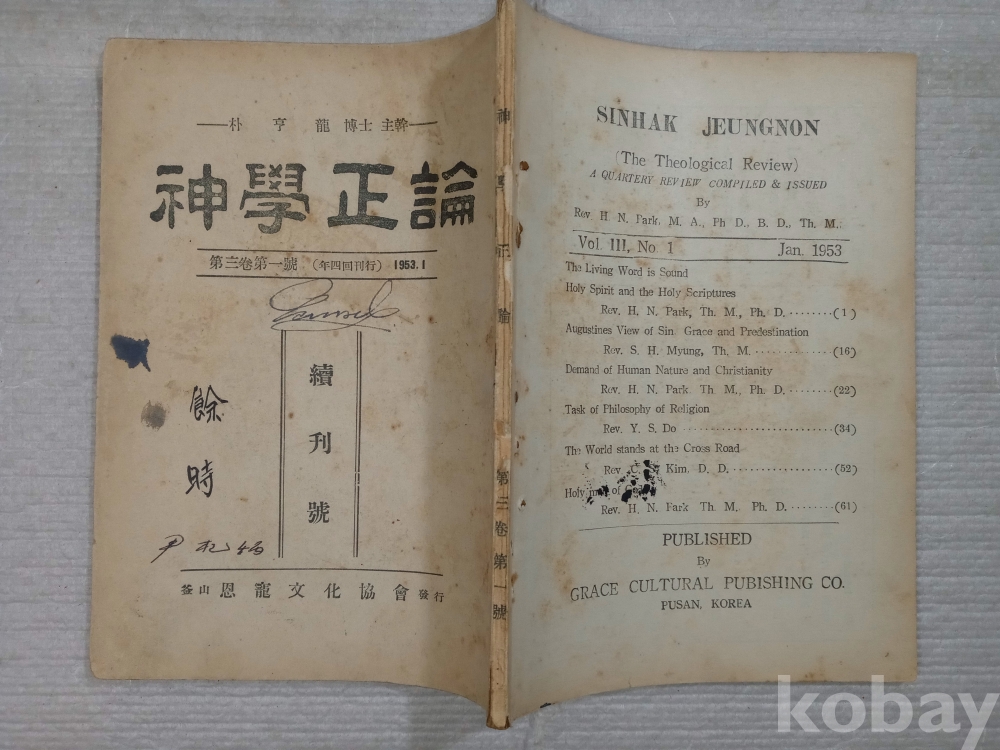 朴亨龍博士主幹
神學正論
第三卷第一號 (年四回刊行) 1953.1
續刊號
餘
時
釜山 恩寵文化協會 發行
神學正論 第三卷第一號
SINHAK JEUNGNON
(The Theological Review)
A QUARTERY REVIEW COMPILED & ISSUED
By
Rev. H N. Park, M. A., Ph D., B. D., Th M.
Vol. III, No 1 Jan. 1953
The Living Word is Sound
Holy Spirit and the Holy Scriptures
Rev. H. N. Park, Th. M., Ph. D. ········(1)
Augustines View of Sin Grace and Predestination
Rev. S. H. Myung, Th. M. ··············(16)
Demand of Human Nature and Christianity
Rev. H. N. Park Th. M., Ph. D. ········(22)
Task of Philosophy of Religion
Rev. Y. S. Do ···························(34)
The World stands at the Cross Road
Rev. C. Kim, D. D. ··················(52)
Holy of
Rev. H. N. Park Th M. Ph. D. ········(61)
PUBLISHED
By
GRACE CULTURAL PUBISHING CO.
PUSAN, KOREA
kobay